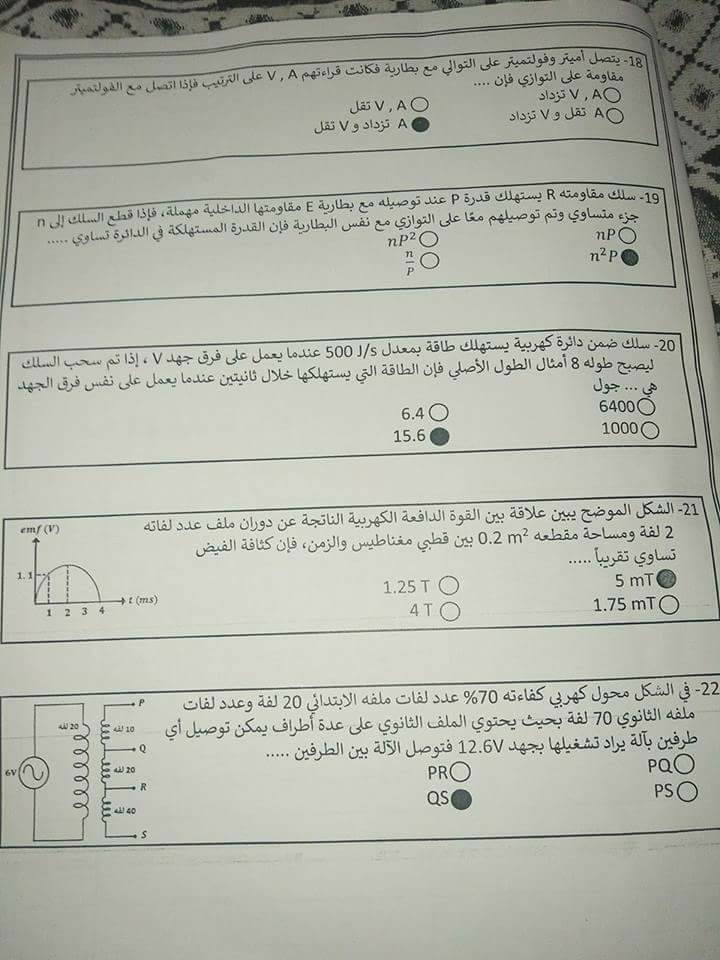 18- يتصل أميتر وفولتميتر على التوالي مع بطارية فكانت قراءتهم V , A على الترتيب فإذا اتصل مع الفولتميتر
مقاومة على التوازي فإن ....
V , A تزداد
V , A تقل
A تقل و V تزداد
A تزداد و V تقل
19- سلك مقاومته R يستهلك قدرة P عند توصيله مع بطارية E مقاومتها الداخلية مهملة، فإذا قطع السلك إلى n
جزء متساوي وتم توصيلهم معًا على التوازي مع نفس البطارية فإن القدرة المستهلكة في الدائرة تساوي .....
nP
nP²
n²P
n/P
20- سلك ضمن دائرة كهربية يستهلك طاقة بمعدل 500 J/s عندما يعمل على فرق جهد V ، إذا تم سحب السلك
ليصبح طوله 8 أمثال الطول الأصلي فإن الطاقة التي يستهلكها خلال ثانيتين عندما يعمل على نفس فرق الجهد
هي ... جول
6400
6.4
1000
15.6
21- الشكل الموضح يبين علاقة بين القوة الدافعة الكهربية الناتجة عن دوران ملف عدد لفاته
2 لفة ومساحة مقطعه 0.2 m² بين قطبي مغناطيس والزمن، فإن كثافة الفيض
تساوي تقريباً .....
5 mT
1.25 T
1.75 mT
4 T
emf (V)
1.1
1 2 3 4
t (ms)
22- في الشكل محول كهربي كفاءته 70% عدد لفات ملفه الابتدائي 20 لفة وعدد لفات
ملفه الثانوي 70 لفة بحيث يحتوي الملف الثانوي على عدة أطراف يمكن توصيل أي
طرفين بآلة يراد تشغيلها بجهد 12.6V فتوصل الآلة بين الطرفين .....
PQ
PR
PS
QS
6V
20 لفة
P
10 لفة
Q
20 لفة
R
40 لفة
S